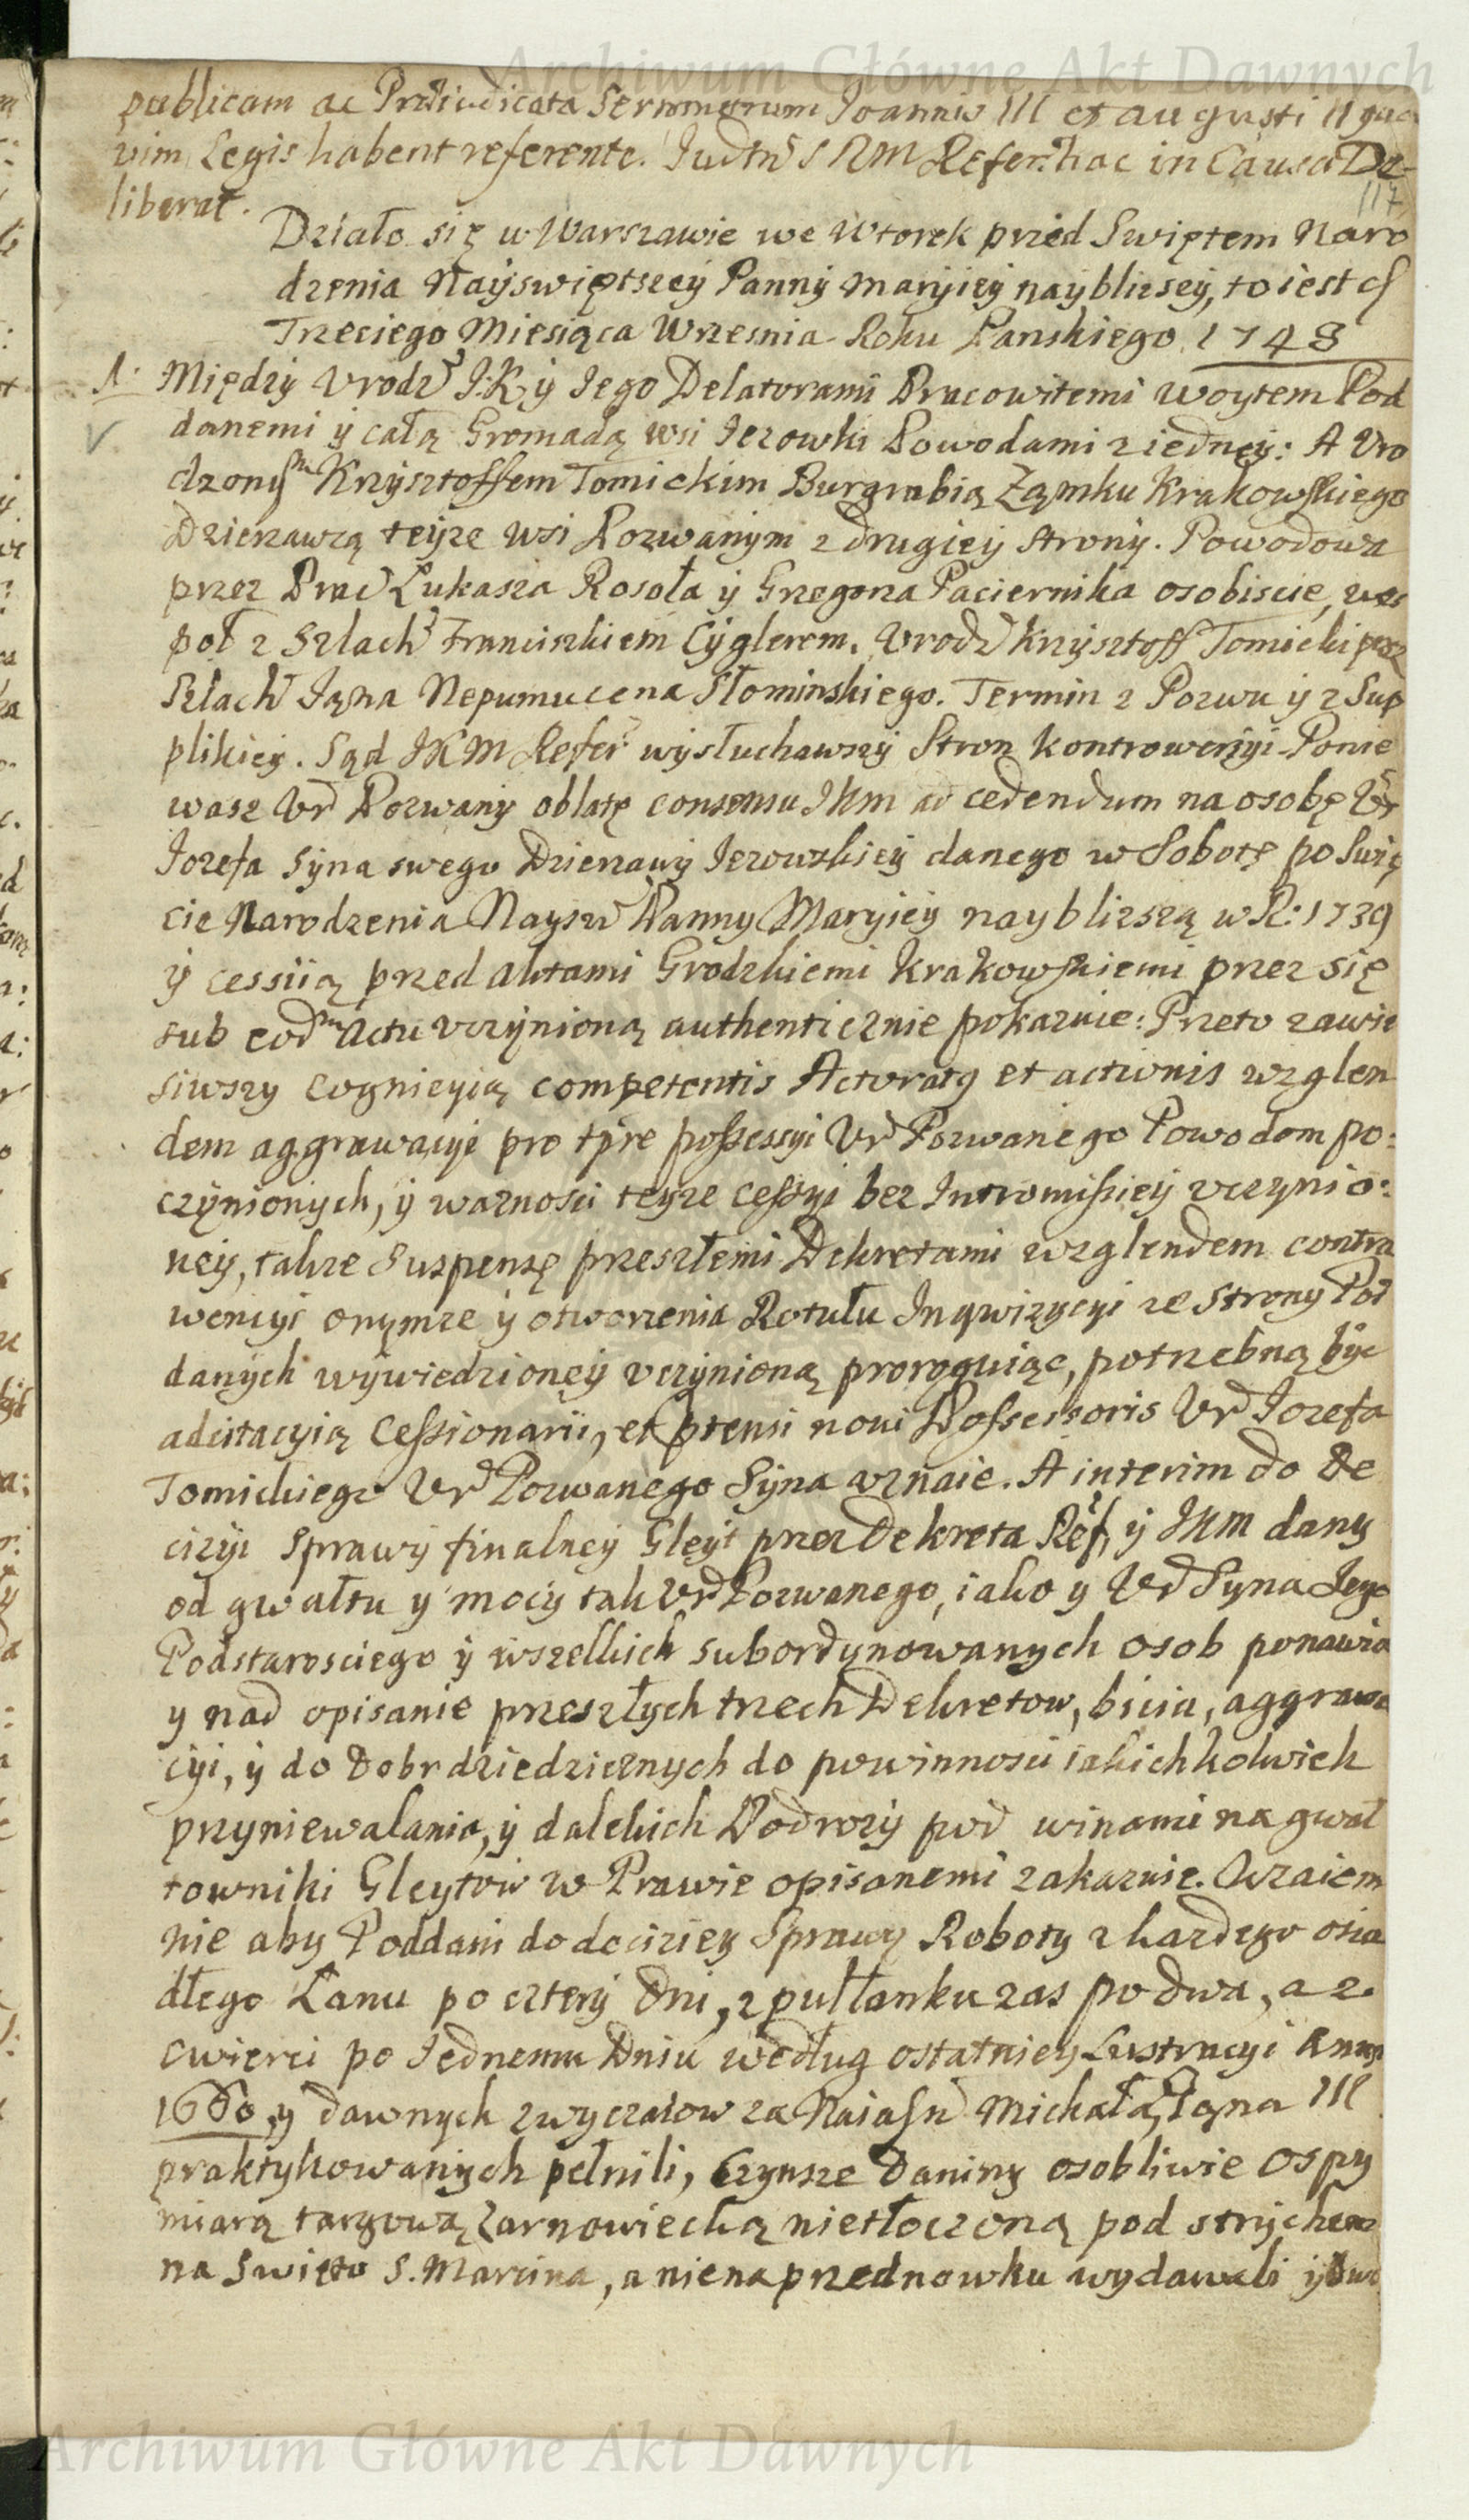 Archiwum Główne Akt Dawnych
publicam ac Præiudicata Serenmorum Joannis III et augusti II quæ
vim Legis habent referente. Judm S R M Refer. hac in Causa De-
liberat.
117
Działo się w Warszawie we Wtorek przed Swiętem Naro
dzenia Nayswiętszey Panny Maryiey nayblizsey, to iest d
Trzeciego Miesiąca Wrzesnia Roku Panskiego 1748
1. Między Vrodz I.K. y Iego Delatorami Pracowitemi Woytem Pod
danemi y całą Gromadą wsi Jezowki Powodami z iedney: A Vro
dzonym Krzysztoffem Tomickim Burgrabią Zamku Krakowskiego
Dzierzawcą teyze wsi Pozwanym z drugiey strony. Powodowie
przez Prac Łukasza Rosoła y Grzegorza Paciernika osobiscie, wes
poł z Szlach Franciszkiem Cyglerem. Vrodz Krzysztoff Tomicki przez
Szlach Jana Nepumucena Słominskiego. Termin z Pozwu y z Sup
plikiey. Sąd JKM Refer wysłuchawszy Stron kontrowersyi Ponie
wasz Vr Pozwany oblatę consensu JKM ad cedendum na osobę Vr
Jozefa Syna swego Dzierzawy Jezowskiey danego w Sobotę po Swię
cie Narodzenia Naysw Panny Maryiey nayblizszą w R: 1739
y cessiią przed aktami Grodzkiemi Krakowskiemi przez się
sub eodm Actu vczynioną authenticznie pokazuie: Przeto zawie
siwszy Cognicyią competentis Actoratq et actionis wzglen
dem aggrawacyi pro tpre possessyi Vr Pozwanego Powodom po:
czynionych, y waznosci teyze cessyi bez Intromissiey vczynio:
ney, takze Suspensę przeszłemi Dekretami wzglendem contra
wencyi onymze y otworzenia Rotułu Inqwizycyi ze strony Pod
danych wywiedzioney vczynioną proroguiąc, potrzebną byc
adcitacyią Cessionarii, et ptensi noui Possessoris Vr Jozefa
Tomickiego Vr Pozwanego Syna vznaie. A interim do De
cizyi Sprawy finalney Gleyt przez Dekreta Ref, y JKM dany
od gwałtu y mocy tak Vr Pozwanego, iako y Vr Syna Jego
Podstarosciego y wszelkich subordynowanych osob ponawia
y nad opisanie przeszłych trzech Dekretow, bicia, aggrawa
cyi, y do Dobr dziedzicznych do powinnosci iakichkolwiek
przyniewalania, y dalekich Podrozy pod winami na gwał
towniki Gleytow w Prawie opisanemi zakazuie. Wzaiem
nie aby Poddani do decizyey Sprawy Roboty z kazdego osia
dłego Łanu po cztery Dni, z pułłanku zas po dwa, a z
cwierci po Jednemu Dniu według ostatniey Lustracyi Anni
1660, y dawnych zwyczaiow za Naiasn Michała, Jana III
praktykowanych pełnili, Czynsze Daniny osobliwie ospy
miarą targową Zarnowiecką nietłoczoną pod strychem
na Swięto S. Marcina, a nie na przednowku wydawali y
Archiwum Główne Akt Dawnych